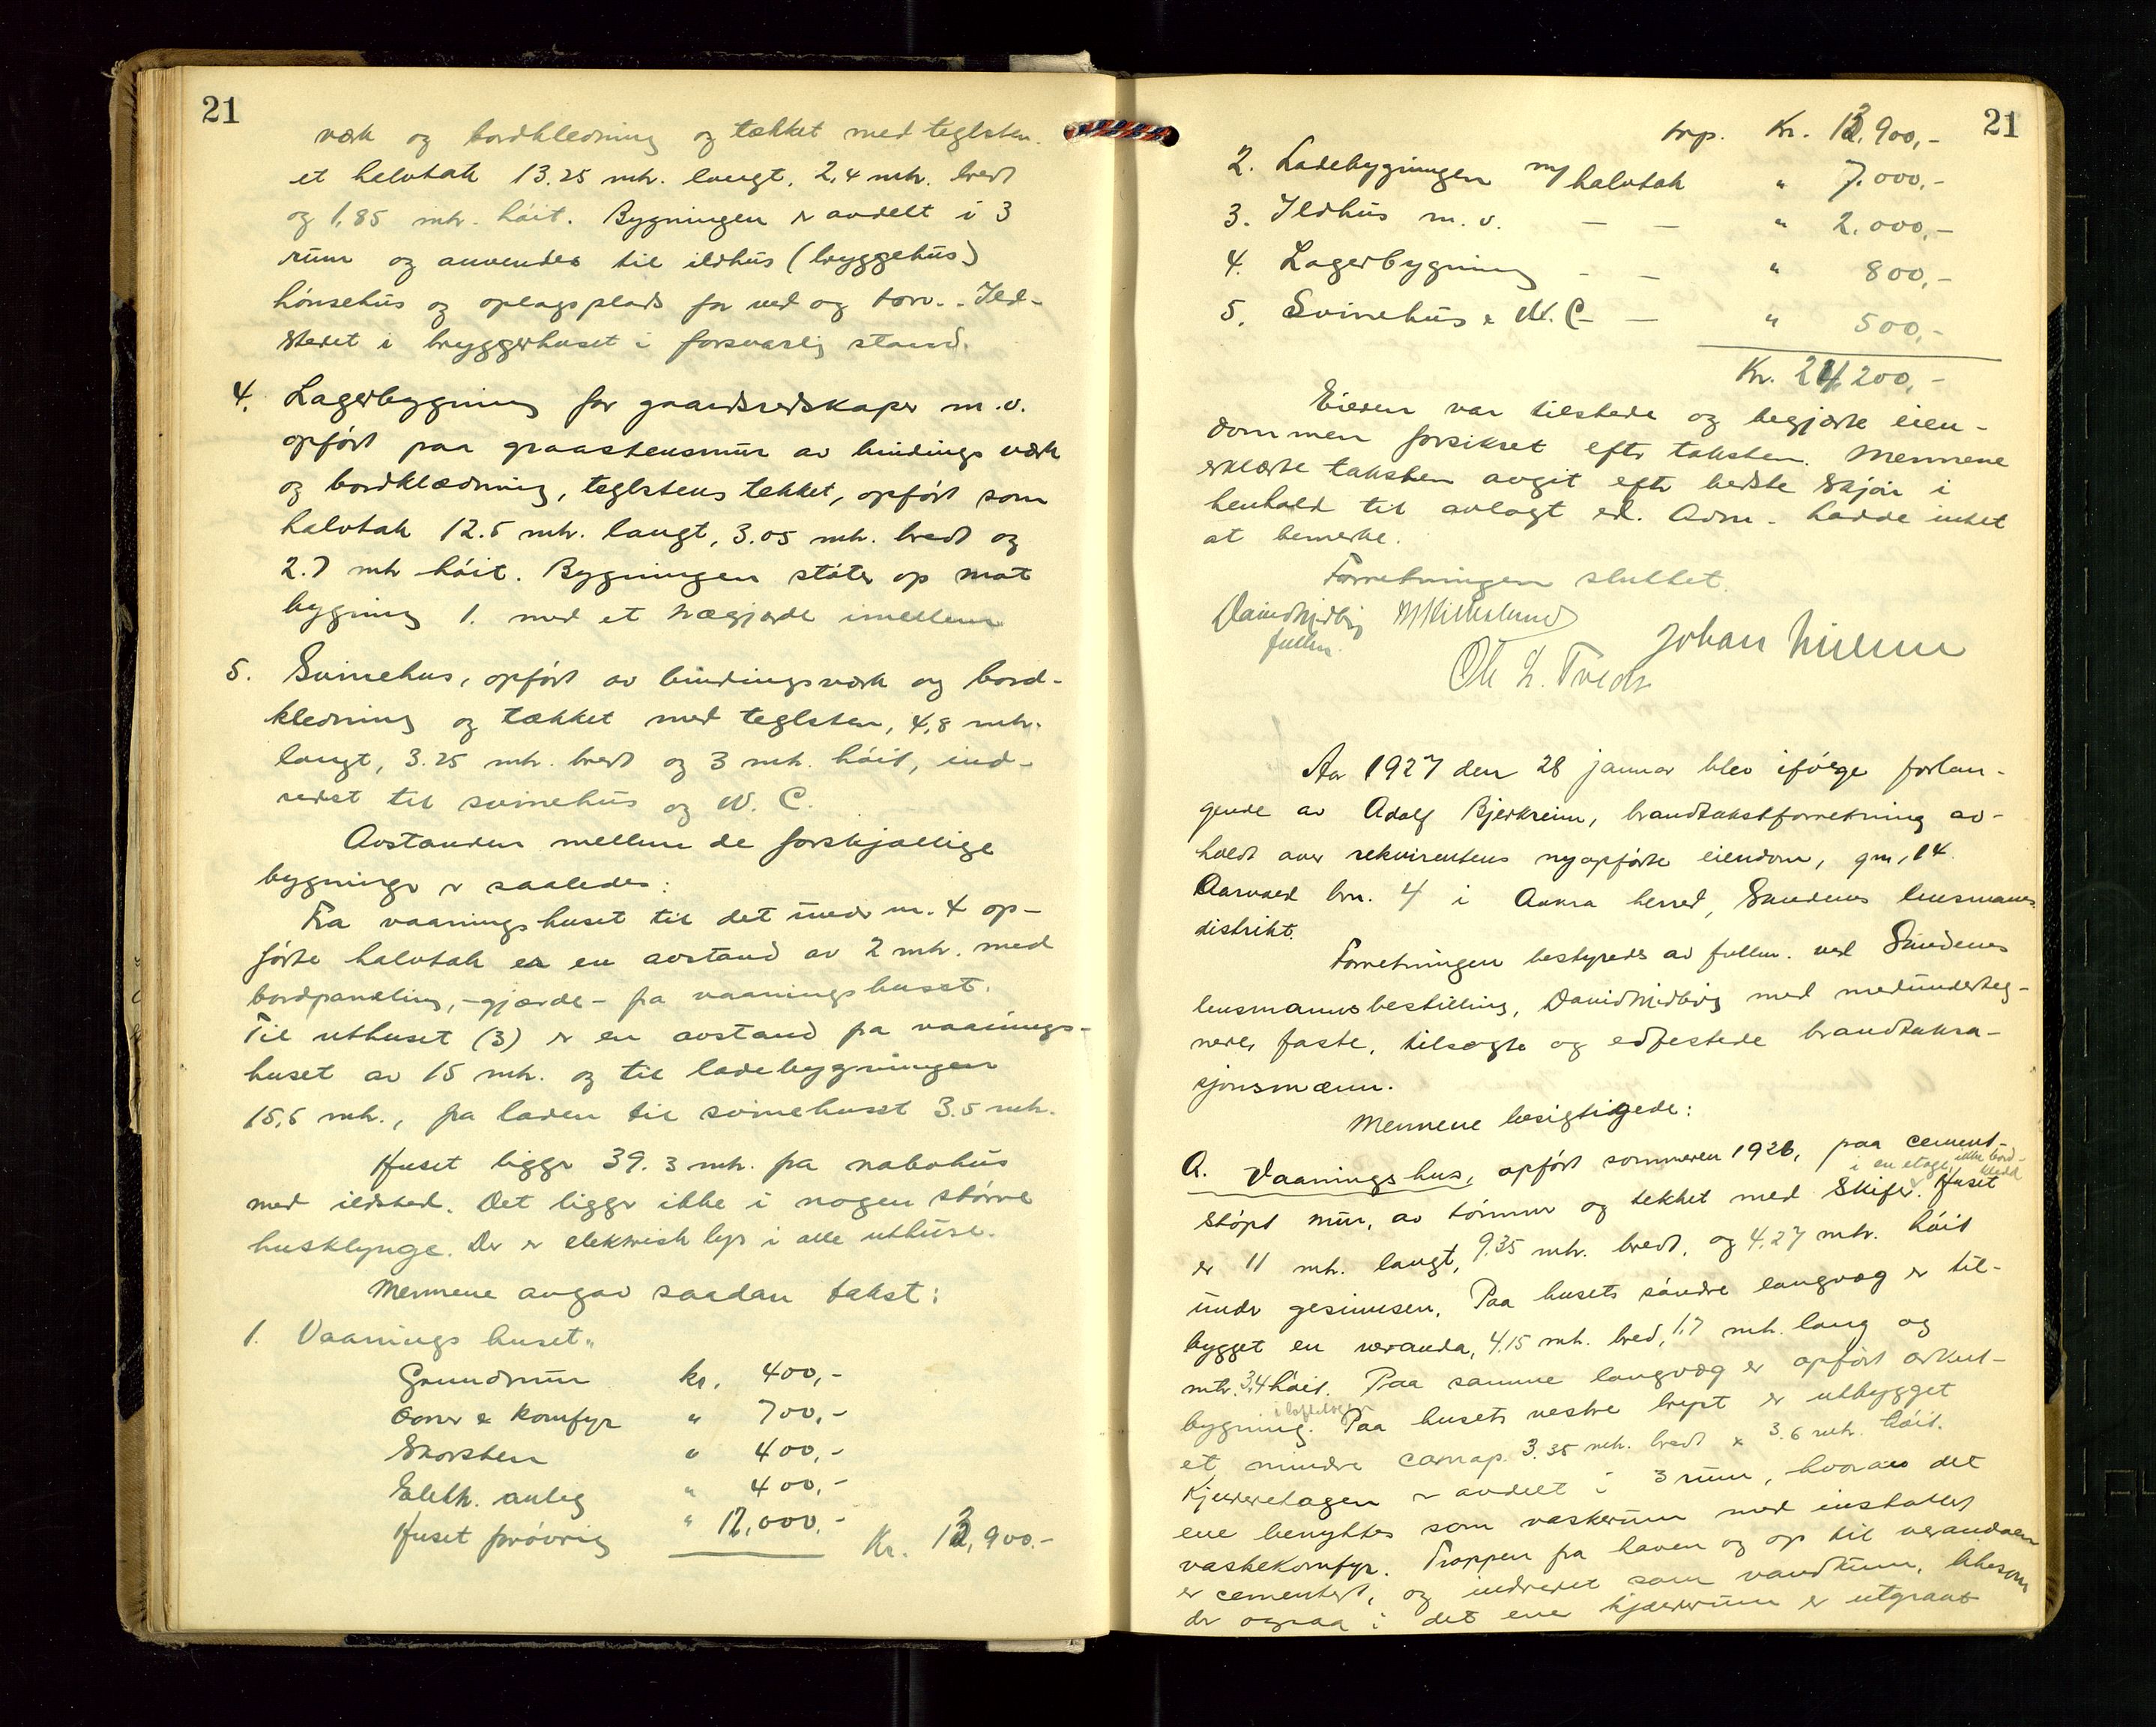 21
værk og bordkledning og tækket med teglsten.
et halvtak 13.25 mtr. langt, 2,4 mtr. bredt
og 1,85 mtr. höit. Bygningen er avdelt i 3
rum og anvendes til ildhus (bryggehus)
hönsehus og oplagsplads for ved og torv. - Ild-
stedet i bryggerhuset i forsvarlig stand.
4. Lagerbygning for gaardsredskaper m.v.
opfört paa graastensmur av bindingsværk
og bordklædning, teglstens tekket, opfört som
halvtak 12.5 mtr. langt, 3.05 mtr. bredt og
2.7 mtr höit. Bygningen stöter op mot
bygning 1. med et trægjærde imellem
5. Svinehus, opfört av bindingsværk og bord-
kledning og tækket med teglsten, 4,8 mtr.
langt, 3.25 mtr. bredt og 3 mtr. höit, ind-
redet til svinehus og W. C.
Avstanden mellem de forskjællige
bygninger er saaledes:
Fra vaaningshuset til det under nr. 4 op-
förte halvtak er en avstand av 2 mtr. med
bordpaneling, -gjærde- fra vaaningshuset.
Til uthuset (3) er en avstand fra vaanings-
huset av 15 mtr. og til ladebygningen
15,5 mtr., fra laden til svinehuset 3.5 mtr.
Huset ligger 39.3 mtr. fra nabohus
med ildsted. Det ligger ikke i nogen större
husklynge. Der er elektrisk lys i alle uthuse.
Mennene avgav saadan takst:
1. Vaaningshuset:
Grundmur kr. 400,-
Ovner & komfyr " 700,-
Skorsten " 400,-
Elektr. anlæg " 400,-
Huset forövrig " 12,000,- Kr. 13,900.-
21
trsp. Kr. 13,900,-
2. Ladebygningen m/ halvtak " 7.000,-
3. Ildhus m.v. - - " 2.000,-
4. Lagerbygning - - " 800,-
5. Svinehus & W.C. - " 500,-
Kr. 24,200,-
Eieren var tilstede og begjærte eien-
dommen forsikret efter taksten. Mennene
erklærte taksten avgit efter bedste skjön i
henhold til avlagt ed. Adm. hadde intet
at bemerke.
Forretningen sluttet.
David
fullm.
Johan Nielsen
Ole L. Tvedt
Aar 1927 den 28 januar blev ifölge forlan-
gende av Adolf Bjerkreim, brandtakstforretning av-
holdt over rekvirentens nyopförte eiendom, gnr. 14
Aarvold brn. 4 i Aukra herred, Skudenes lensmanns
distrikt.
Forretningen bestyredes av fullm. ved Skudenes
lensmannsbestilling, David med medunderteg-
nede, faste, tilsagte og edfestede brandtaksa-
sjonsmænn.
Mennene besigtigede:
A. Vaaningshus, opfört sommeren 1926, paa cement-
i en etage, ikke bord-
kledd
stöpt mur, av tömmer og tekket med Skifer. Huset
er 11 mtr. langt, 9.35 mtr. bredt, og 4.27 mtr. höit
under gesimsen. Paa husets söndre langvæg er til-
bygget en veranda, 4.15 mtr. bred, 1.7 mtr. lang og
mtr. 3,4 höit. Paa samme langvæg er opfört arkut-
i loftetagen
bygning. Paa husets vestre bryst er utbygget
et mindre carnap. 3.35 mtr. bredt x 3.6 mtr. höit.
Kjelleretagen er avdelt i 3 rum, hvorav det
ene benyttes som vaskerum med installert
vaskekomfyr. Trappen fra haven og op til verandaen
er cementert, og indredet som vandkum, likesom
der ogsaa i det ene kjælderrum er utgravt